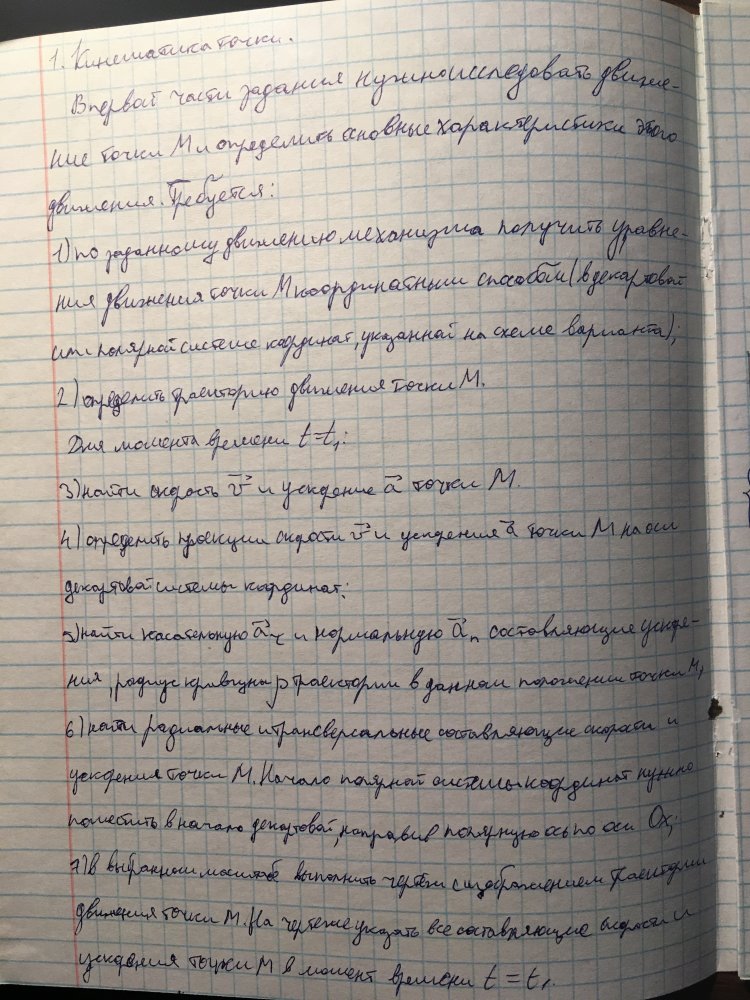 1. Кинематика точки.
В первой части задания нужно исследовать движе-
ние точки M и определить основные характеристики этого
движения. Требуется:
1) по заданному движению механизма получить уравне-
ния движения точки M координатным способом (в декартовой
или полярной системе координат, указанной на схеме варианта);
2) определить траекторию движения точки M.
Для момента времени t=t₁:
3) найти скорость v⃗ и ускорение a⃗ точки M.
4) определить проекции скорости v⃗ и ускорения a⃗ точки M на оси
декартовой системы координат;
5) найти касательную a⃗τ и нормальную a⃗n составляющие ускоре-
ния, радиус кривизны ρ траектории в данном положении точки M;
6) найти радиальные и трансверсальные составляющие скорости и
ускорения точки M. Начало полярной системы координат нужно
поместить в начало декартовой, направив полярную ось по оси Ox;
7) в выбранном масштабе выполнить чертеж с изображением траектории
движения точки M. На чертеже указать все составляющие скорости и
ускорения точки M в момент времени t=t₁.